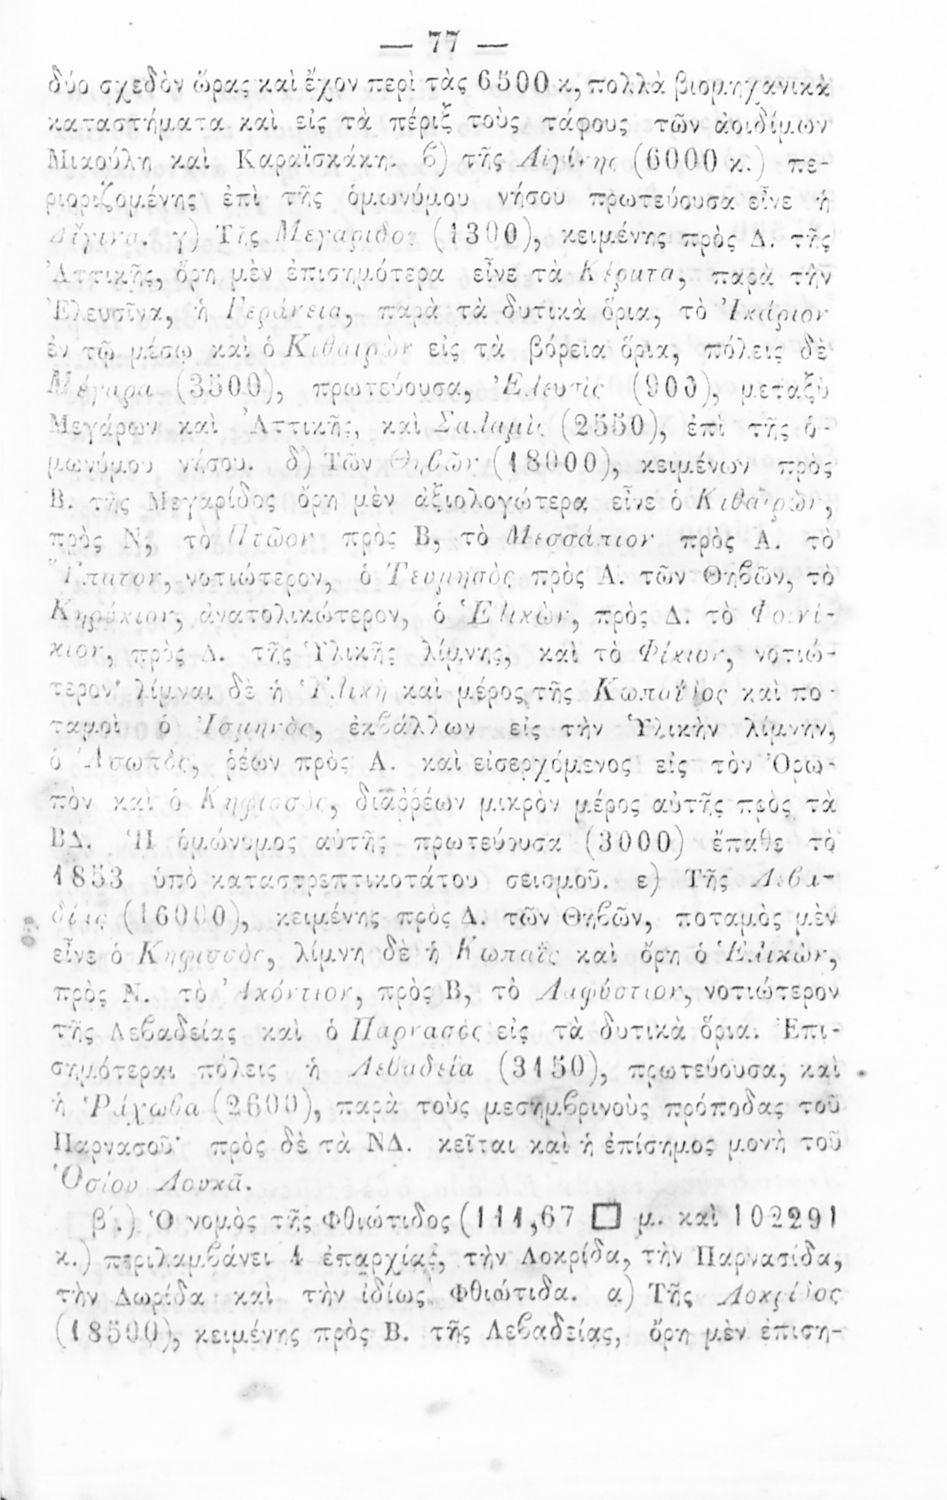 — 77 —
δύο σχεδὸν ὥρας καὶ ἔχον περὶ τὰς 6500 κ, πολλὰ βιομηχανικὰ
καταστήματα καὶ εἰς τὰ πέριξ τοὺς τάφους τῶν ἀοιδίμων
Μιαούλη καὶ Καραϊσκάκη. β) τῆς Αἰγίνης (6000 κ.) πε-
ριοριζομένης ἐπὶ τῆς ὁμωνύμου νήσου πρωτεύουσα εἶνε ἡ
Αἴγινα. γ) Τῆς Μεγαρίδος (1300), κειμένης πρὸς Δ. τῆς
Ἀττικῆς, ὄρη μὲν ἐπισημότερα εἶνε τὰ Κέρατα, παρὰ τὴν
Ἐλευσῖνα, ἡ Γεράνεια, παρὰ τὰ δυτικὰ ὅρια, τὸ Ἰκάριον
ἐν τῷ μέσῳ καὶ ὁ Κιθαιρὼν εἰς τὰ βόρεια ὅρια, πόλεις δὲ
Μέγαρα (3500), πρωτεύουσα, Ἐλευσὶς (900), μεταξὺ
Μεγάρων καὶ Ἀττικῆς, καὶ Σαλαμὶς (2550), ἐπὶ τῆς ὁ-
μωνύμου νήσου. δ) Τῶν Θηβῶν (18000), κειμένων πρὸς
Β. τῆς Μεγαρίδος ὄρη μὲν ἀξιολογώτερα εἶνε ὁ Κιθαιρὼν,
πρὸς Ν, τὸ Πτῶον πρὸς Β, τὸ Μεσσάπιον πρὸς Α. τὸ
Ὕπατον, νοτιώτερον, ὁ Τευμησὸς πρὸς Α. τῶν Θηβῶν, τὸ
Κηρύκιον, ἀνατολικώτερον, ὁ Ἑλικὼν, πρὸς Δ. τὸ Φοινί-
κιον, πρὸς Δ. τῆς Ὑλικῆς λίμνης, καὶ τὸ Φίκιον, νοτιώ-
τερον· λίμναι δὲ ἡ Ὑλίκη καὶ μέρος τῆς Κωπαΐδος καὶ πο-
ταμοὶ ὁ Ἰσμηνὸς, ἐκβάλλων εἰς τὴν Ὑλικὴν λίμνην,
ὁ Ἀσωπὸς, ῥέων πρὸς Α. καὶ εἰσερχόμενος εἰς τὸν Ὀρω-
πὸν καὶ ὁ Κηφισσὸς, διαῤῥέων μικρὸν μέρος αὐτῆς πρὸς τὰ
ΒΔ. Ἡ ὁμώνυμος αὐτῆς πρωτεύουσα (3000) ἔπαθε τὸ
1853 ὑπὸ καταστρεπτικοτάτου σεισμοῦ. ε) Τῆς Λεβα-
δίας (16000), κειμένης πρὸς Δ. τῶν Θηβῶν, ποταμὸς μὲν
εἶνε ὁ Κηφισσὸς, λίμνη δὲ ἡ Κωπαῒς καὶ ὄρη ὁ Ἑλικὼν,
πρὸς Ν. τὸ Ἀκόντιον, πρὸς Β, τὸ Λαφύστιον, νοτιώτερον
τῆς Λεβαδείας καὶ ὁ Παρνασὸς εἰς τὰ δυτικὰ ὅρια. Ἐπι-
σημότεραι πόλεις ἡ Λεβαδεία (3150), πρωτεύουσα, καὶ
ἡ Ῥάχωβα (2600), παρὰ τοὺς μεσημβρινοὺς πρόποδας τοῦ
Παρνασοῦ· πρὸς δὲ τὰ ΝΔ. κεῖται καὶ ἡ ἐπίσημος μονὴ τοῦ
Ὁσίου Λουκᾶ.
β΄.) Ὁ νομὸς τῆς Φθιώτιδος (111,67 □ μ. καὶ 102291
κ.) περιλαμβάνει 4 ἐπαρχίας, τὴν Λοκρίδα, τὴν Παρνασίδα,
τὴν Δωρίδα καὶ τὴν ἰδίως Φθιώτιδα. α) Τῆς Λοκρίδος
(18500), κειμένης πρὸς Β. τῆς Λεβαδείας, ὄρη μὲν ἐπιση-